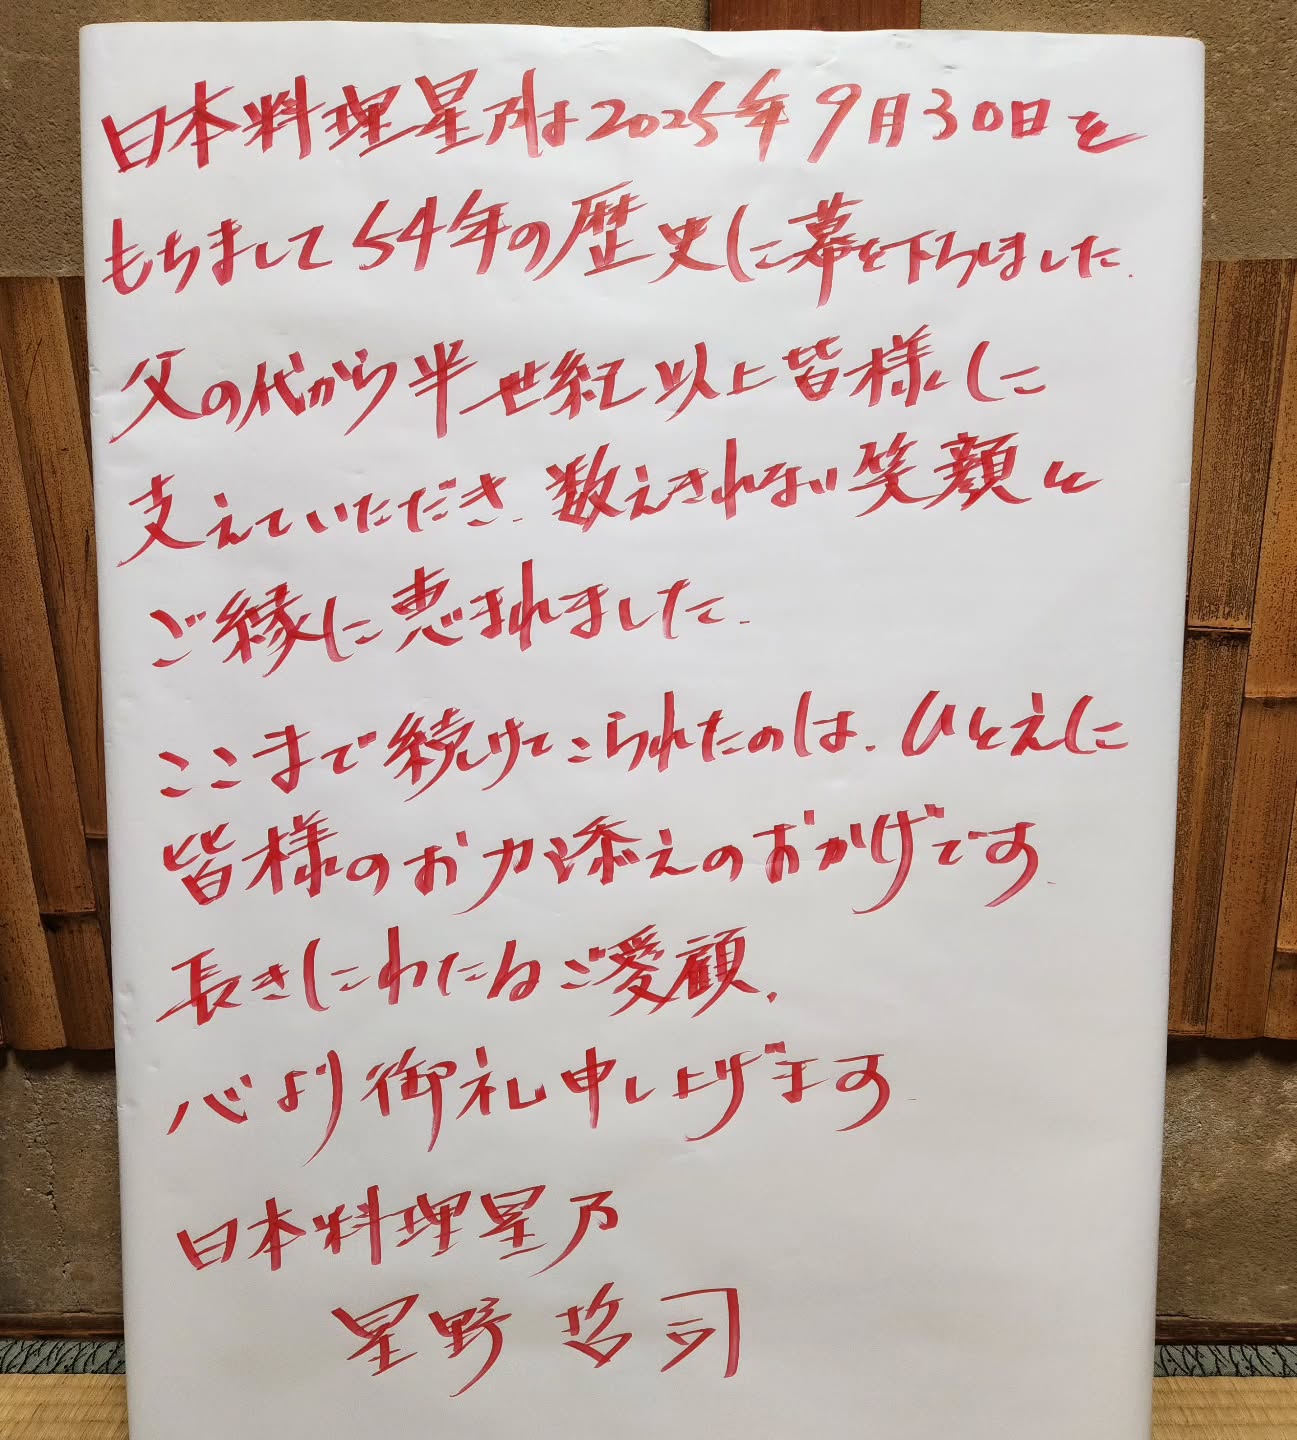 日本料理星乃は2025年9月30日を
もちまして54年の歴史に幕を下ろしました.
父の代から半世紀以上皆様に
支えていただき、数えきれない笑顔と
ご縁に恵まれました.
ここまで続けてこられたのは、ひとえに
皆様のお力添えのおかげです.
長きにわたるご愛顧、
心より御礼申し上げます.
日本料理星乃
星野 哲司